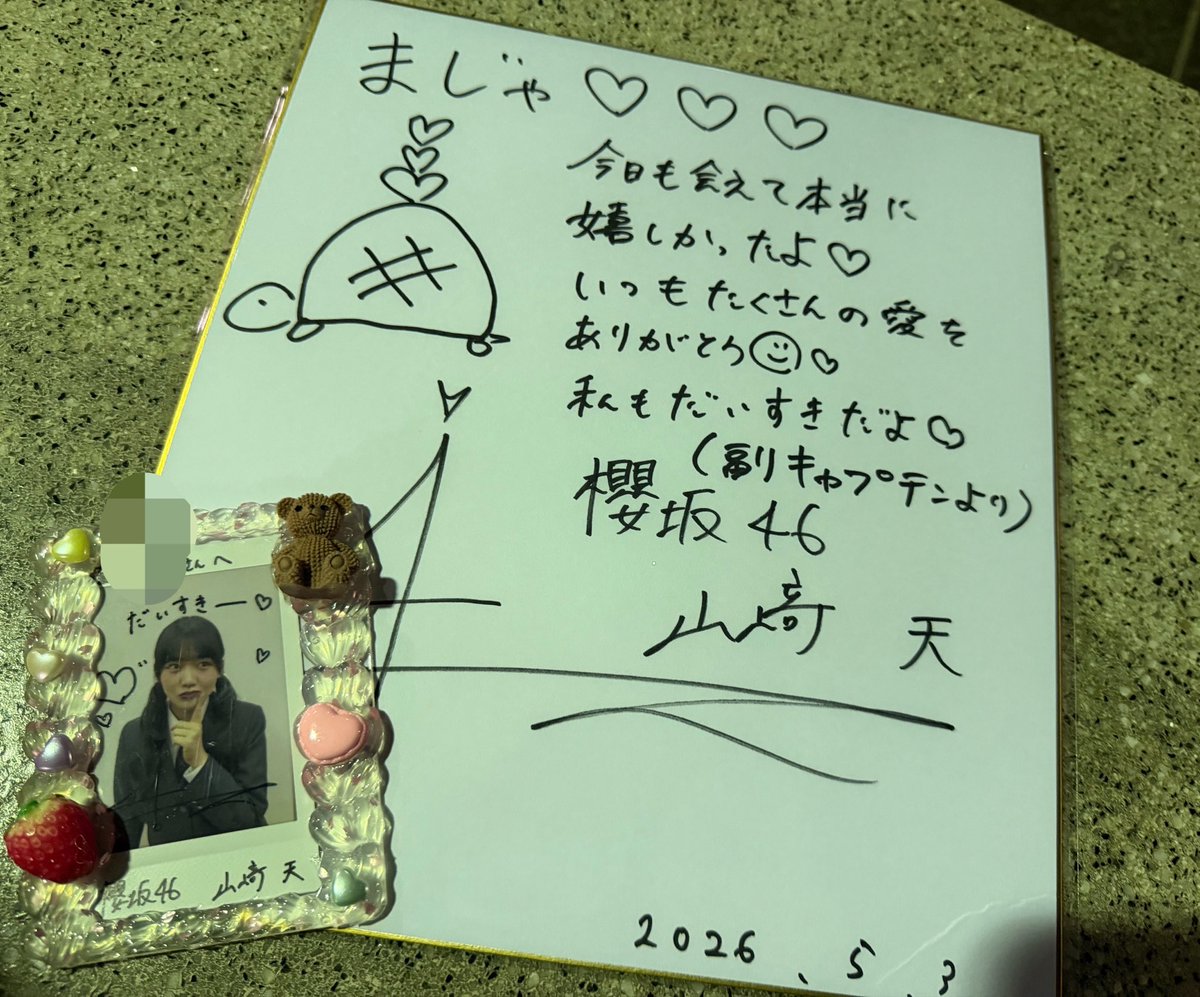 まじゃ♡♡♡
今日も会えて本当に
嬉しかったよ♡
いつもたくさんの愛を
ありがとう☺♡
私もだいすきだよ♡
(副キャプテンより)
櫻坂46
山﨑 天
2026.5.3
さんへ
だいすきー♡
櫻坂46 山﨑 天